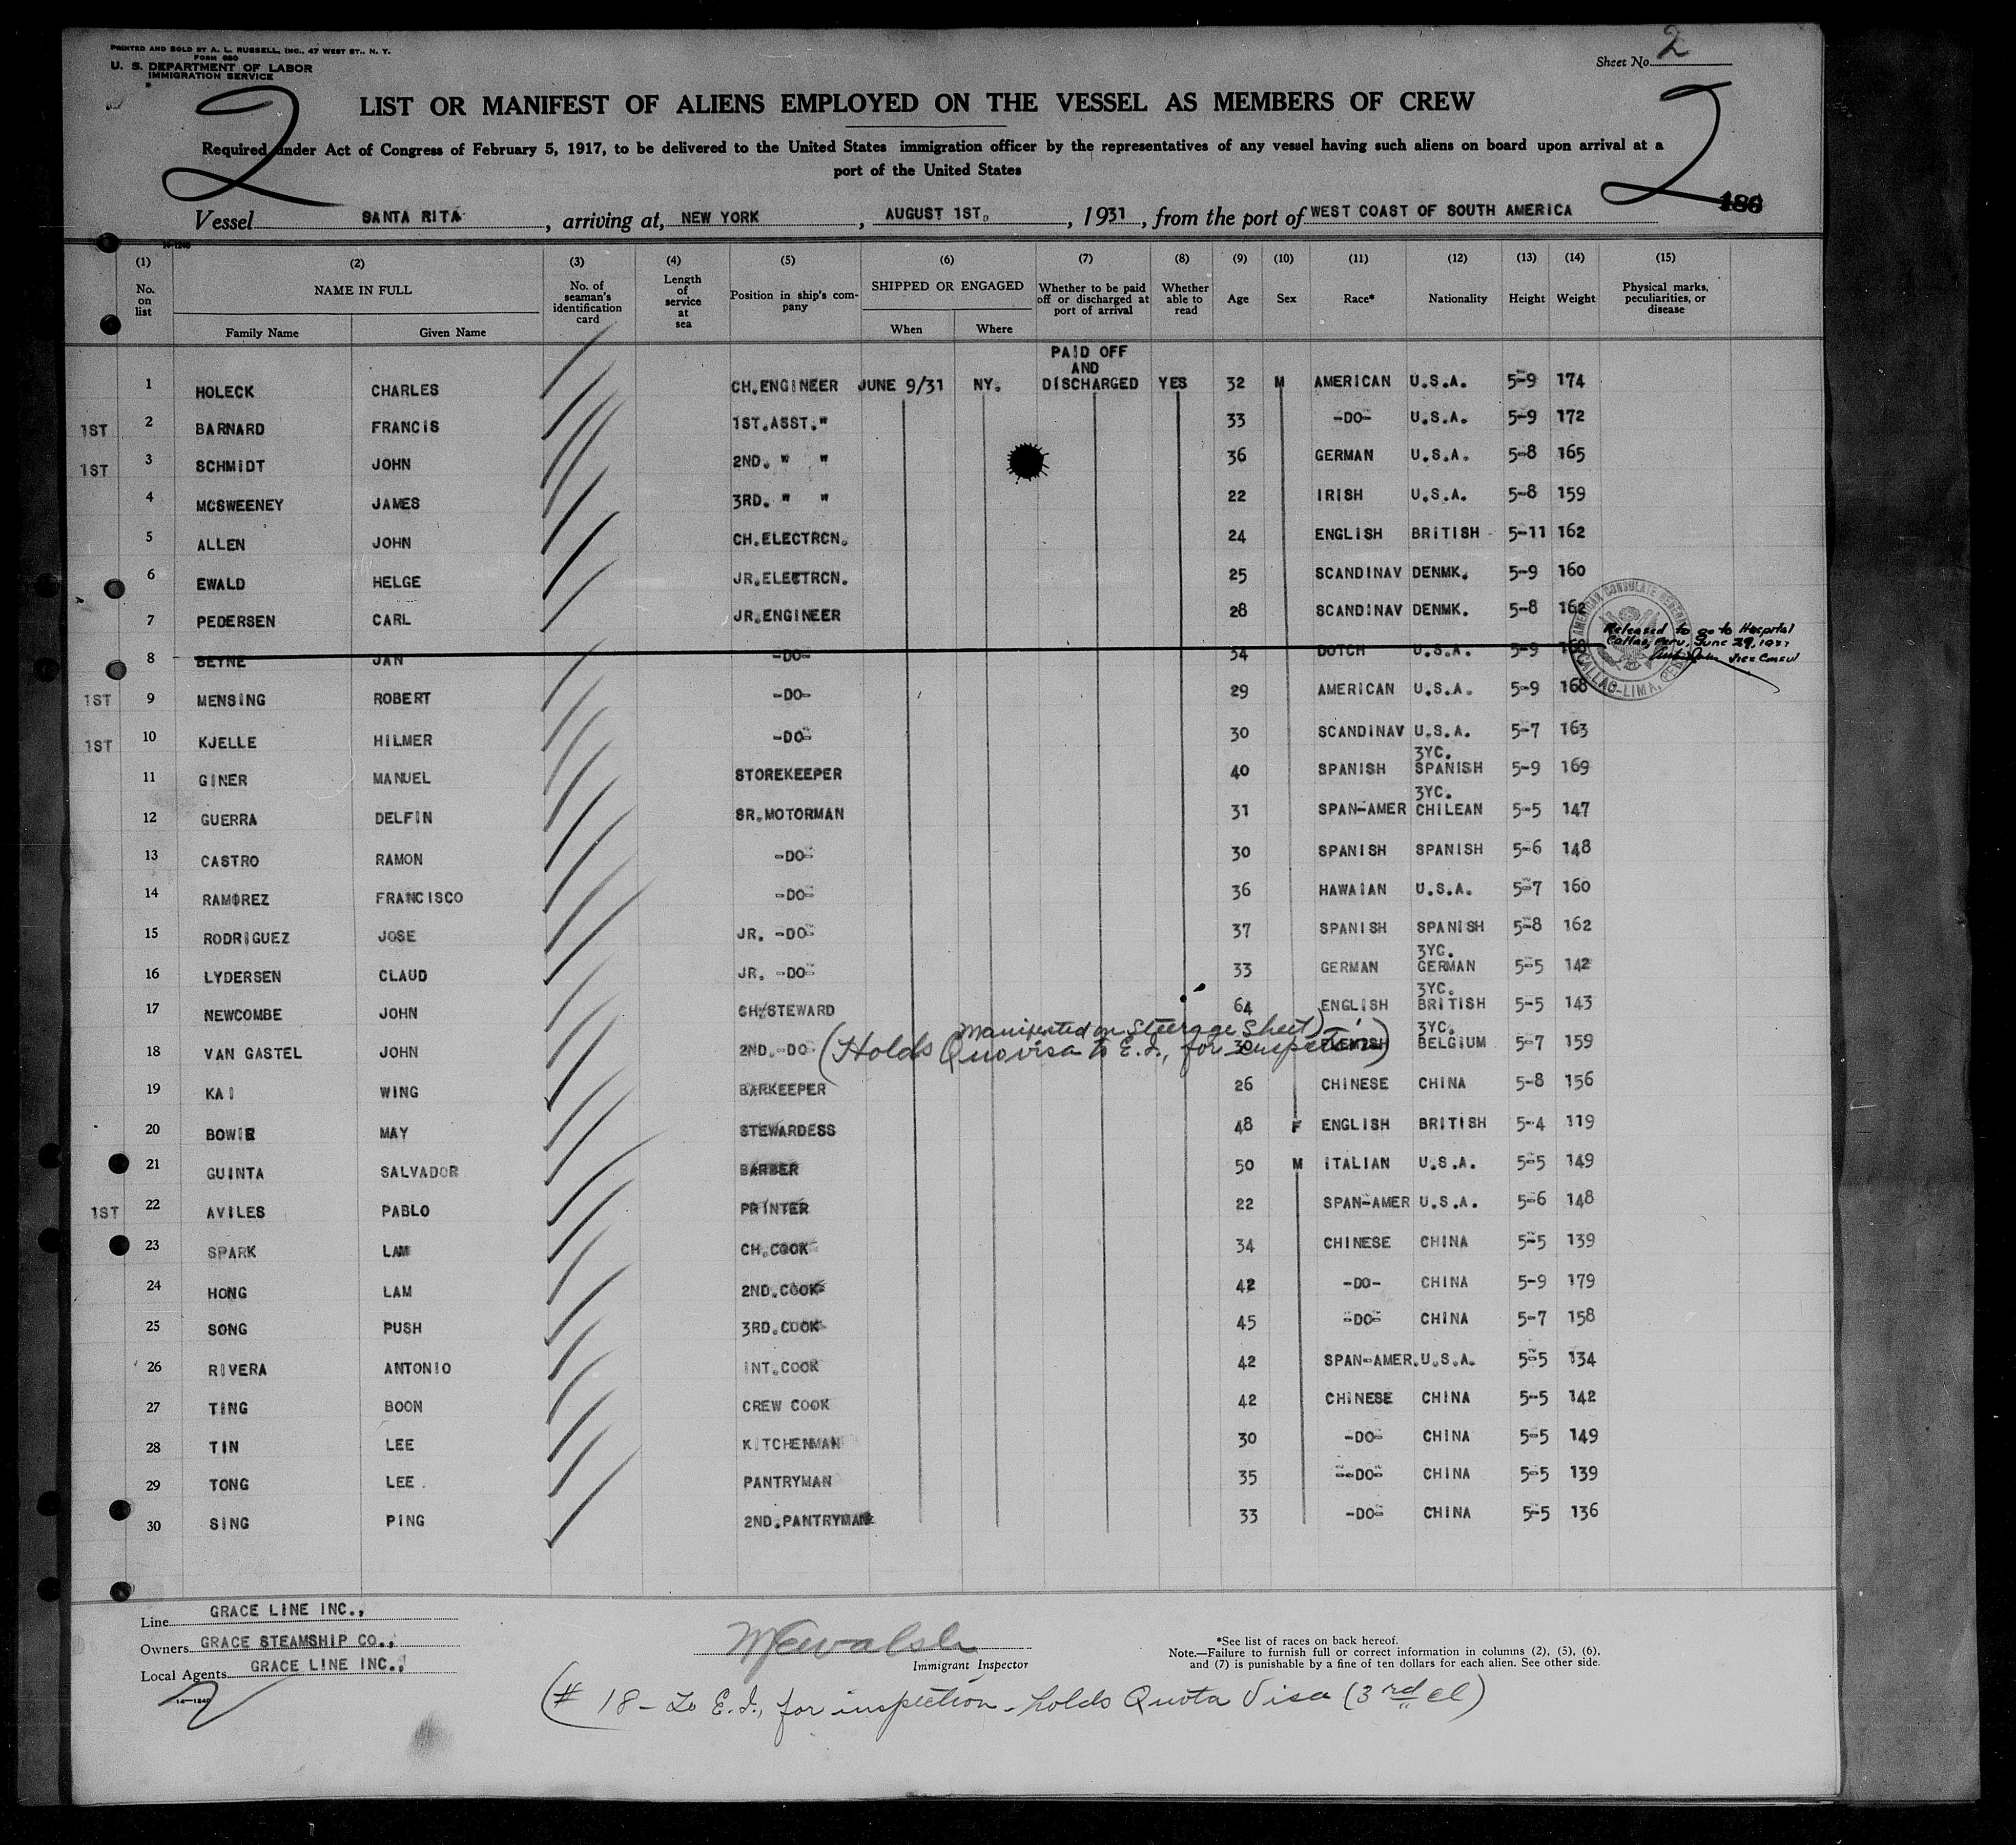 PRINTED AND SOLD BY A. L. RUSSELL, INC., 47 WEST ST., N. Y.
FORM 680
U. S. DEPARTMENT OF LABOR
IMMIGRATION SERVICE
Sheet No. 2
2
2
LIST OR MANIFEST OF ALIENS EMPLOYED ON THE VESSEL AS MEMBERS OF CREW
Required under Act of Congress of February 5, 1917, to be delivered to the United States immigration officer by the representatives of any vessel having such aliens on board upon arrival at a
port of the United States
186
Vessel SANTA RITA, arriving at, NEW YORK, AUGUST 1ST., 1931, from the port of WEST COAST OF SOUTH AMERICA
14-1240
(1) (2) (3) (4) (5) (6) (7) (8) (9) (10) (11) (12) (13) (14) (15)
No. on list NAME IN FULL Family Name Given Name No. of seaman's identification card Length of service at sea Position in ship's company SHIPPED OR ENGAGED When Where Whether to be paid off or discharged at port of arrival Whether able to read Age Sex Race* Nationality Height Weight Physical marks, peculiarities, or disease
PAID OFF
AND
1 HOLECK CHARLES CH.ENGINEER JUNE 9/31 NY. DISCHARGED YES 32 M AMERICAN U.S.A. 5-9 174
1ST 2 BARNARD FRANCIS 1ST.ASST." 33 -DO- U.S.A. 5-9 172
1ST 3 SCHMIDT JOHN 2ND. " " 36 GERMAN U.S.A. 5-8 165
4 MCSWEENEY JAMES 3RD. " " 22 IRISH U.S.A. 5-8 159
5 ALLEN JOHN CH.ELECTRCN. 24 ENGLISH BRITISH 5-11 162
6 EWALD HELGE JR.ELECTRCN. 25 SCANDINAV DENMK. 5-9 160
7 PEDERSEN CARL JR.ENGINEER 28 SCANDINAV DENMK. 5-8 162
8 BEYNE JAN -DO- 34 DUTCH U.S.A. 5-9
AMERICAN CONSULATE GENERAL
CALLAO-LIMA, PERU
Released to go to Hospital
Callao, Peru, June 29, 1931
Vice Consul
1ST 9 MENSING ROBERT -DO- 29 AMERICAN U.S.A. 5-9 168
1ST 10 KJELLE HILMER -DO- 30 SCANDINAV U.S.A. 5-7 163
3YC.
11 GINER MANUEL STOREKEEPER 40 SPANISH SPANISH 5-9 169
3YC.
12 GUERRA DELFIN SR.MOTORMAN 31 SPAN-AMER CHILEAN 5-5 147
13 CASTRO RAMON -DO- 30 SPANISH SPANISH 5-6 148
14 RAMIREZ FRANCISCO -DO- 36 HAWAIAN U.S.A. 5-7 160
15 RODRIGUEZ JOSE JR. -DO- 37 SPANISH SPANISH 5-8 162
3YC.
16 LYDERSEN CLAUD JR. -DO- 33 GERMAN GERMAN 5-5 142
3YC.
17 NEWCOMBE JOHN CH/STEWARD 64 ENGLISH BRITISH 5-5 143
Manifested on Steerage Sheet
3YC.
18 VAN GASTEL JOHN 2ND.-DO- 30 FLEMISH BELGIUM 5-7 159
(Holds Quo visa to E.I., for inspection)
19 KAI WING BARKEEPER 26 CHINESE CHINA 5-8 156
20 BOWIE MAY STEWARDESS 48 F ENGLISH BRITISH 5-4 119
21 GUINTA SALVADOR BARBER 50 M ITALIAN U.S.A. 5-5 149
1ST 22 AVILES PABLO PRINTER 22 SPAN-AMER U.S.A. 5-6 148
23 SPARK LAM CH.COOK 34 CHINESE CHINA 5-5 139
24 HONG LAM 2ND.COOK 42 -DO- CHINA 5-9 179
25 SONG PUSH 3RD.COOK 45 -DO- CHINA 5-7 158
26 RIVERA ANTONIO INT.COOK 42 SPAN-AMER. U.S.A. 5-5 134
27 TING BOON CREW COOK 42 CHINESE CHINA 5-5 142
28 TIN LEE KITCHENMAN 30 -DO- CHINA 5-5 149
29 TONG LEE PANTRYMAN 35 --DO- CHINA 5-5 139
30 SING PING 2ND.PANTRYMAN 33 -DO- CHINA 5-5 136
Line GRACE LINE INC.,
Owners GRACE STEAMSHIP CO.,
Local Agents GRACE LINE INC.,
14-1240
Walsh
Immigrant Inspector
*See list of races on back hereof.
Note.—Failure to furnish full or correct information in columns (2), (5), (6),
and (7) is punishable by a fine of ten dollars for each alien. See other side.
(# 18 - To E.I., for inspection - holds Quota Visa (3rd cl)